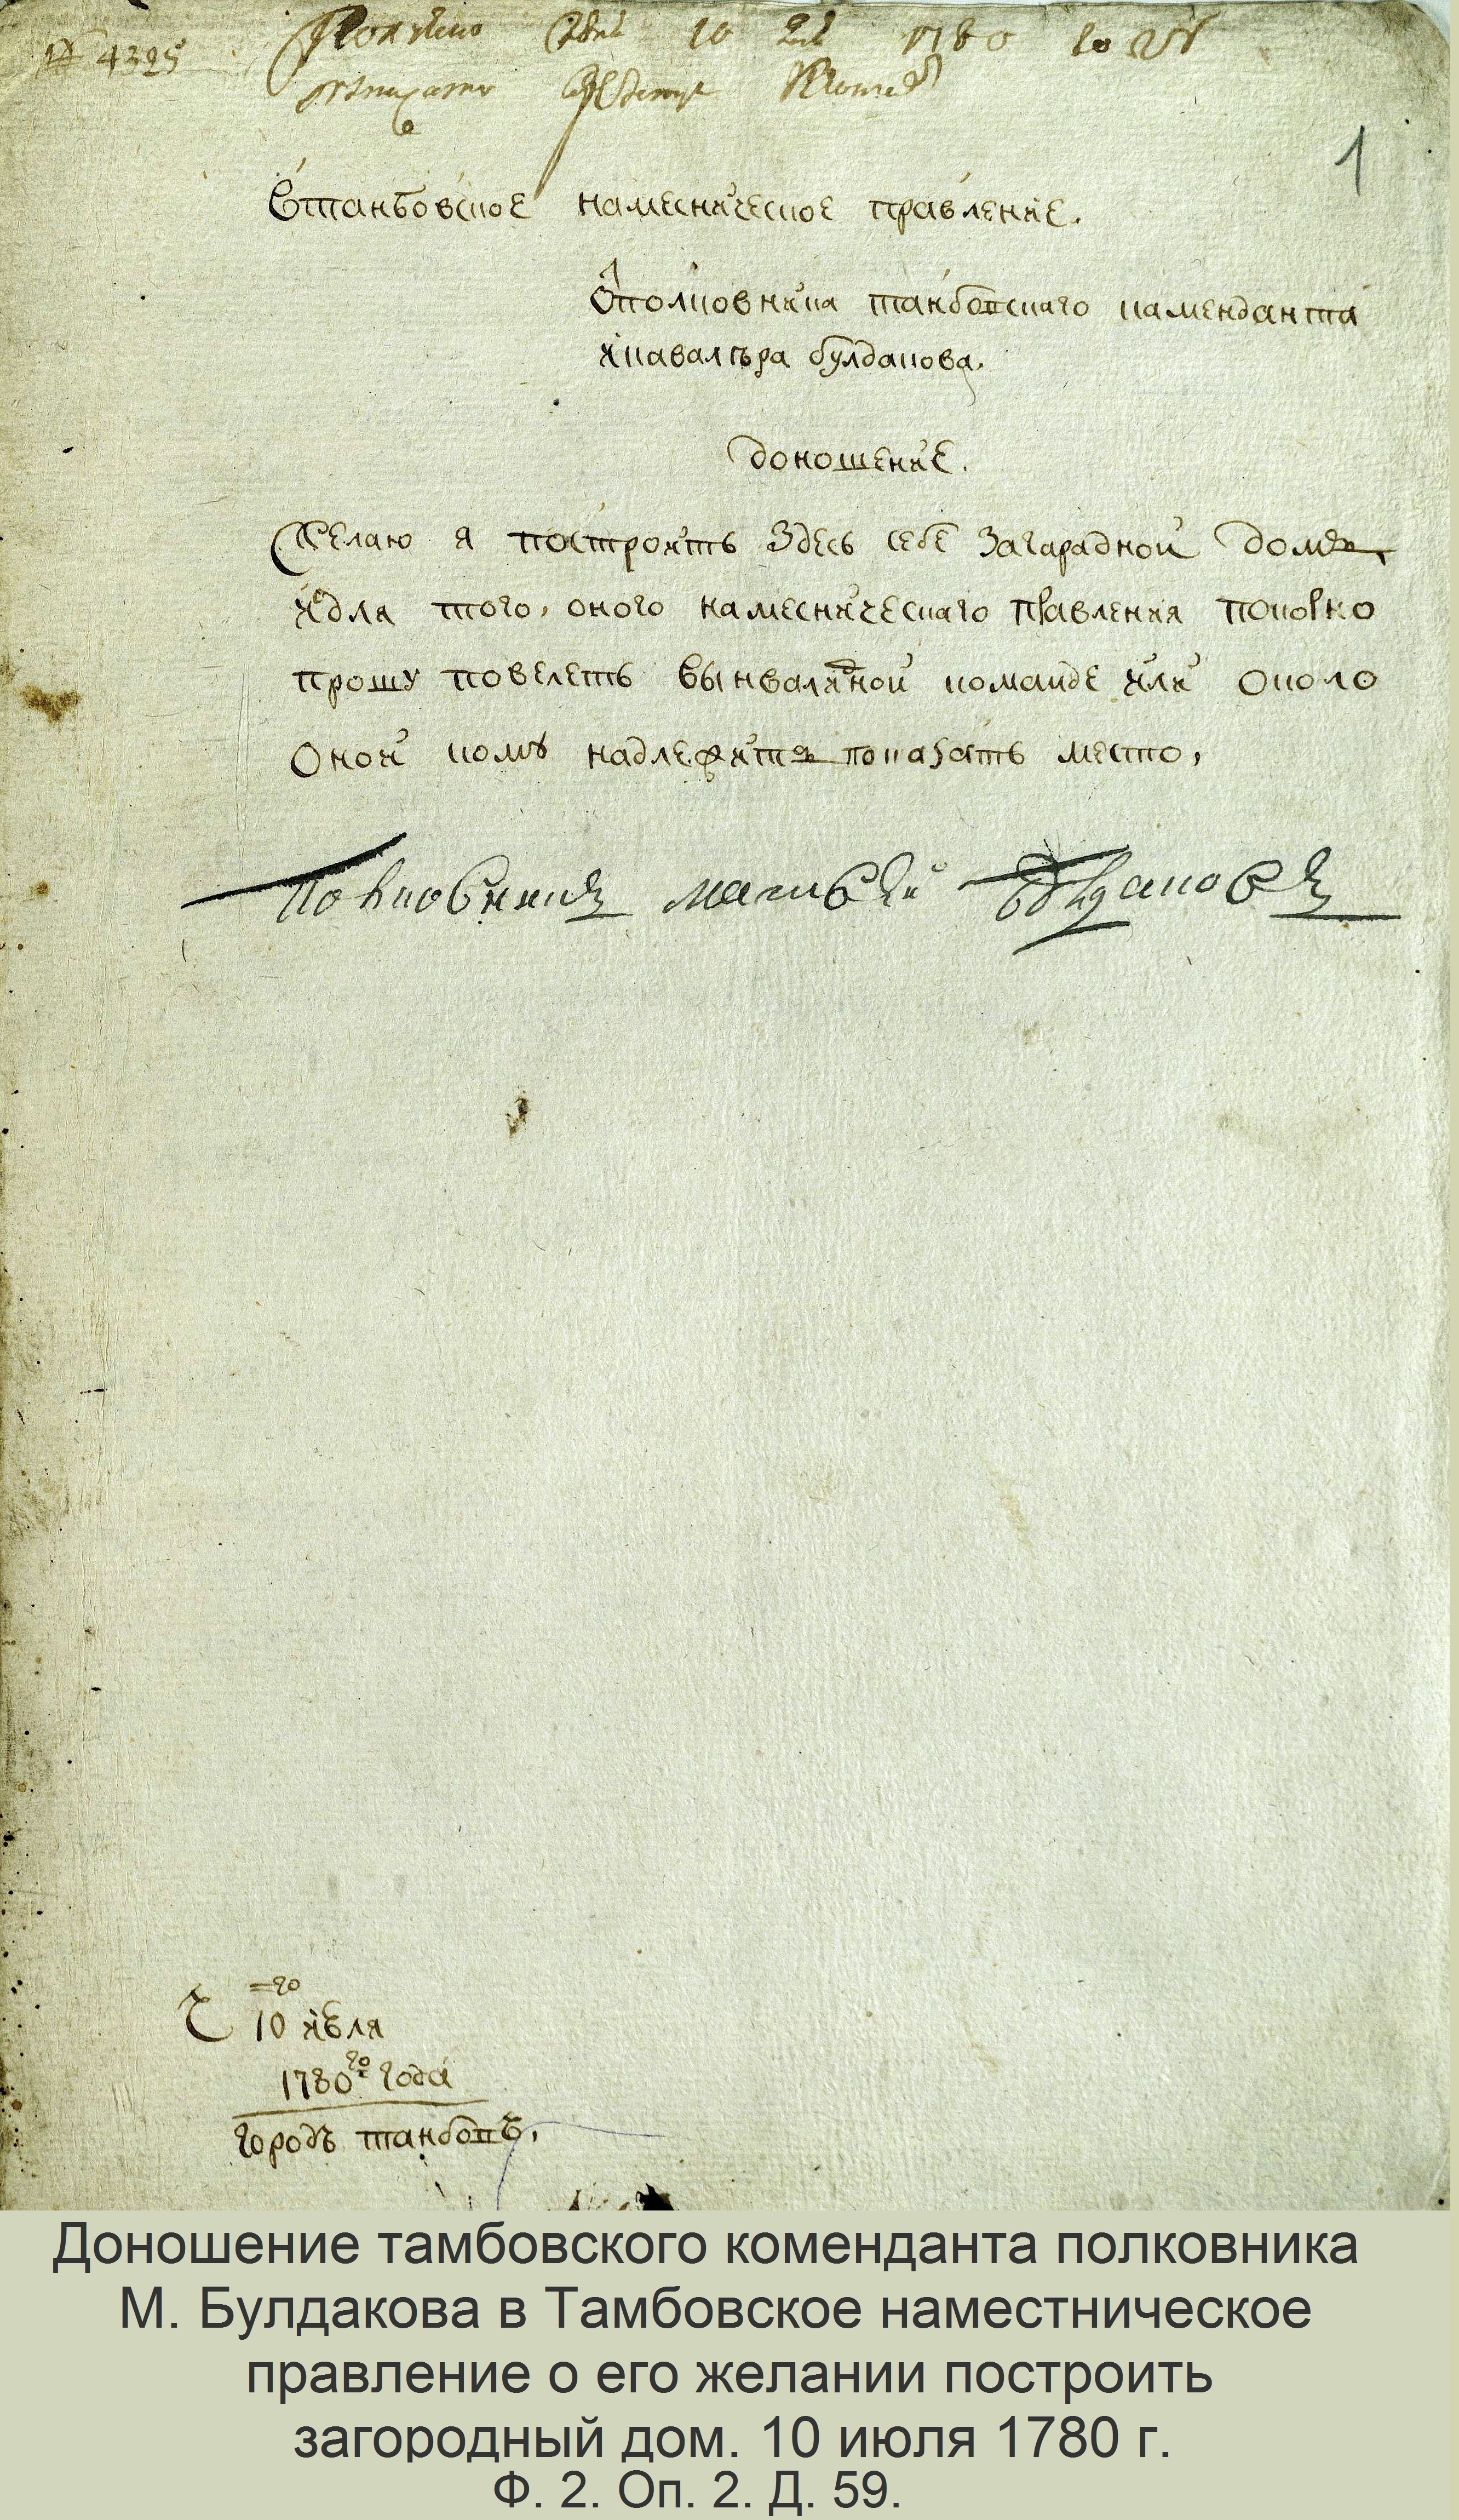 № 4325
Получено 10 1780 году
1
Втанбовское наместническое правление.
Ѿполковника танбовскаго каменданта
икавалера булдакова.
доношение.
Желаю я построить здесь себе загарадной домъ,
идля того, оного наместническаго правления покорно
прошу повелеть вынвалидной команде или около
оной кому надлежитъ показать место,
полковникъ матвей булдаковъ
Ч 10=го июля
1780го года
городъ танбовъ,
Доношение тамбовского коменданта полковника
М. Булдакова в Тамбовское наместническое
правление о его желании построить
загородный дом. 10 июля 1780 г.
Ф. 2. Оп. 2. Д. 59.